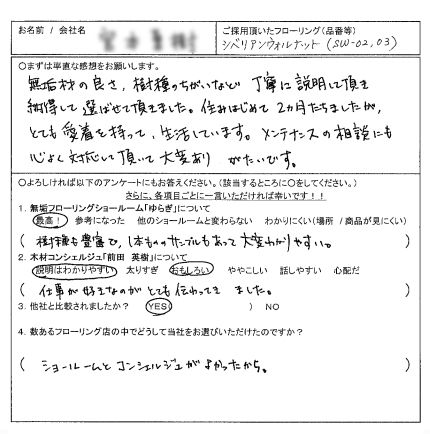 お名前 / 会社名
ご採用頂いたフローリング(品番等)
シベリアンウォルナット (SW-02,03)
〇まずは率直な感想をお願いします。
無垢材の良さ、樹種のちがいなど 丁寧に説明して頂き
納得して選ばせて頂きました。住みはじめて2カ月たちましたが、
とても愛着を持って、生活しています。メンテナンスの相談にも
心よく対応して頂いて大変ありがたいです。
〇よろしければ以下のアンケートにもお答えください。(該当するところに〇をしてください。)
さらに、各項目ごとに一言いただければ幸いです!!
1. 無垢フローリングショールーム「ゆらぎ」について
最高! 参考になった 他のショールームと変わらない わかりにくい(場所 / 商品が見にくい)
( 樹種も豊富で、1本もののサンプルもあって大変わかりやすい。 )
2. 木材コンシェルジュ「前田 英樹」について
説明はわかりやすい 太りすぎ おもしろい ややこしい 話しやすい 心配だ
( 仕事が好きなのがとても伝わってきました。 )
3. 他社と比較されましたか? YES ) NO
4. 数あるフローリング店の中でどうして当社をお選びいただけたのですか?
( ショールームとコンシェルジュがよかったから。 )